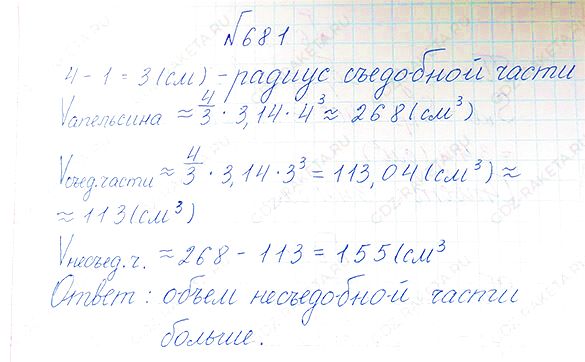 №681
4 - 1 = 3 (см) - радиус съедобной части
Vапельсина ≈ 4/3 · 3,14 · 4³ ≈ 268 (см³)
Vсъед.части ≈ 4/3 · 3,14 · 3³ = 113,04 (см³) ≈
≈ 113 (см³)
Vнесъед.ч. ≈ 268 - 113 = 155 (см³
Ответ: объем несъедобной части
больше.
GDZ-RAKETA.RU